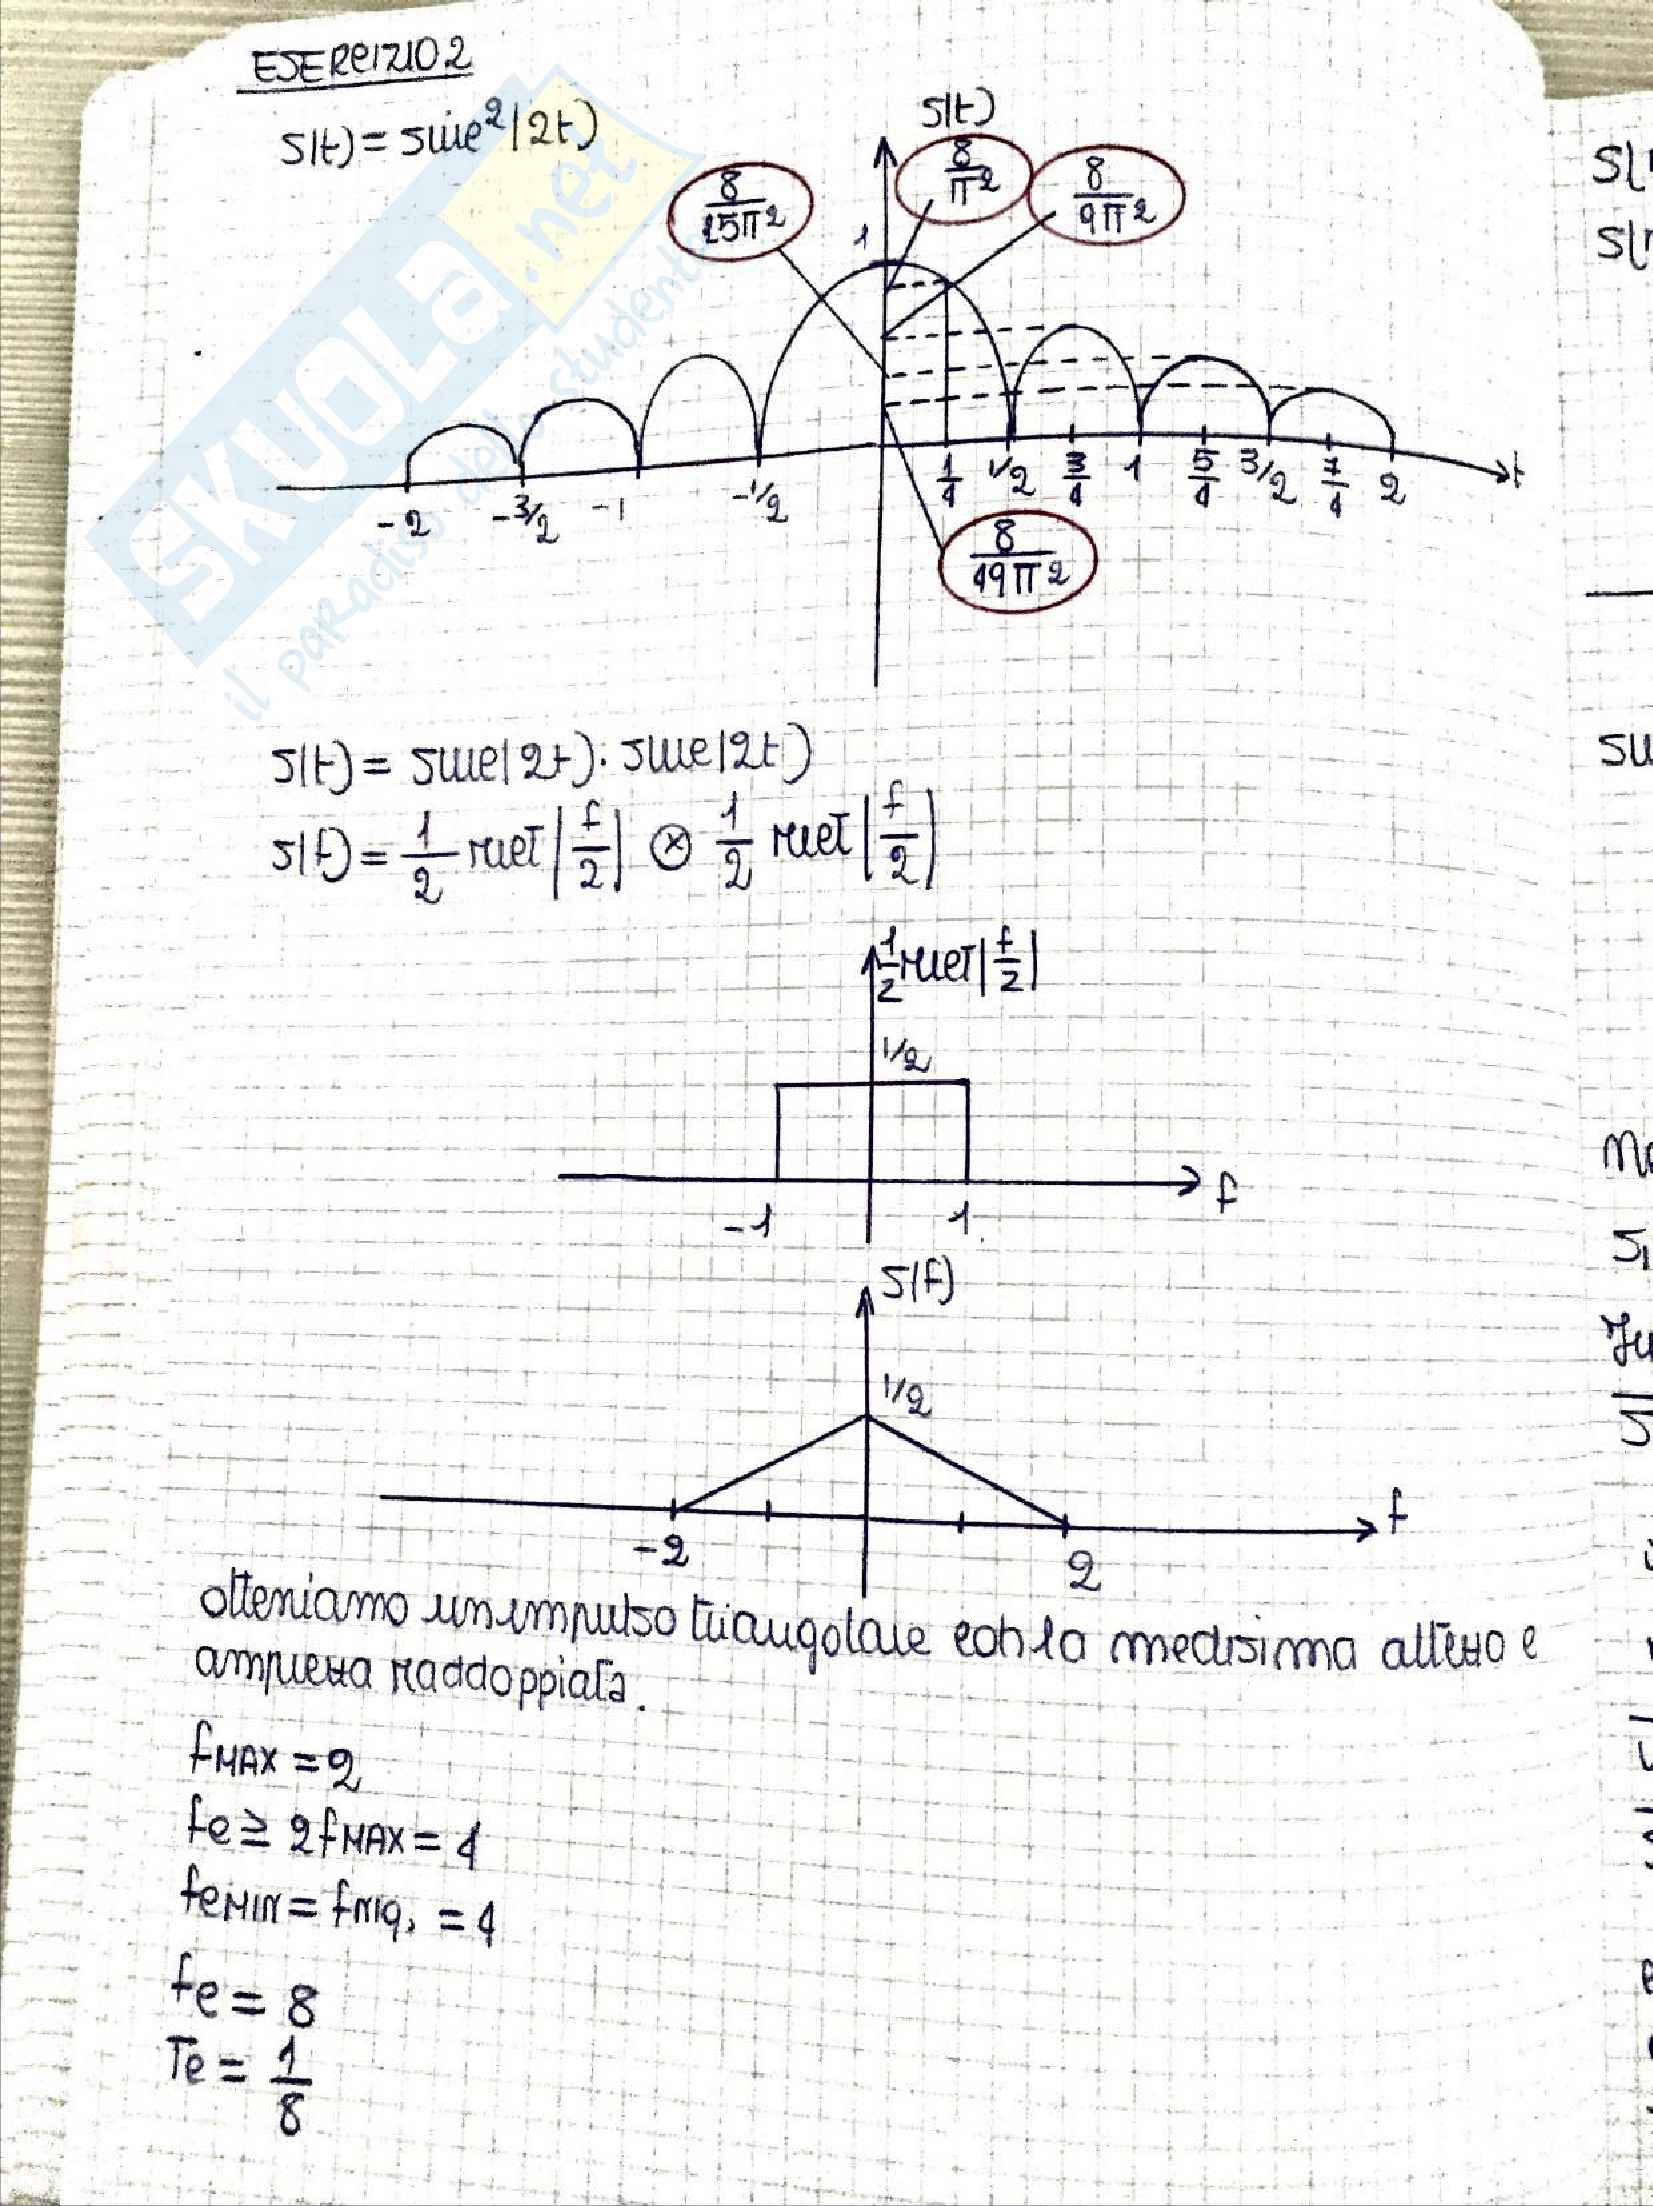 ESERCIZIO 2
s(t) = sinc²(2t)
s(t)
8/25π²
8/π²
8/9π²
1
-2 -3/2 -1 -1/2 1/4 1/2 3/4 1 5/4 3/2 7/4 2 t
8/49π²
SKUOLA.net
il paradiso dello studente
s(t) = sinc(2t) · sinc(2t)
s(f) = 1/2 rect(f/2) ⊗ 1/2 rect(f/2)
1/2 rect(f/2)
1/2
-1 1 f
S(f)
1/2
-2 2 f
otteniamo un impulso triangolare con la medisima altezza e
ampiezza raddoppiata.
fMAX = 2
fc ≥ 2fMAX = 4
fcMIN = fniq. = 4
fc = 8
Tc = 1/8